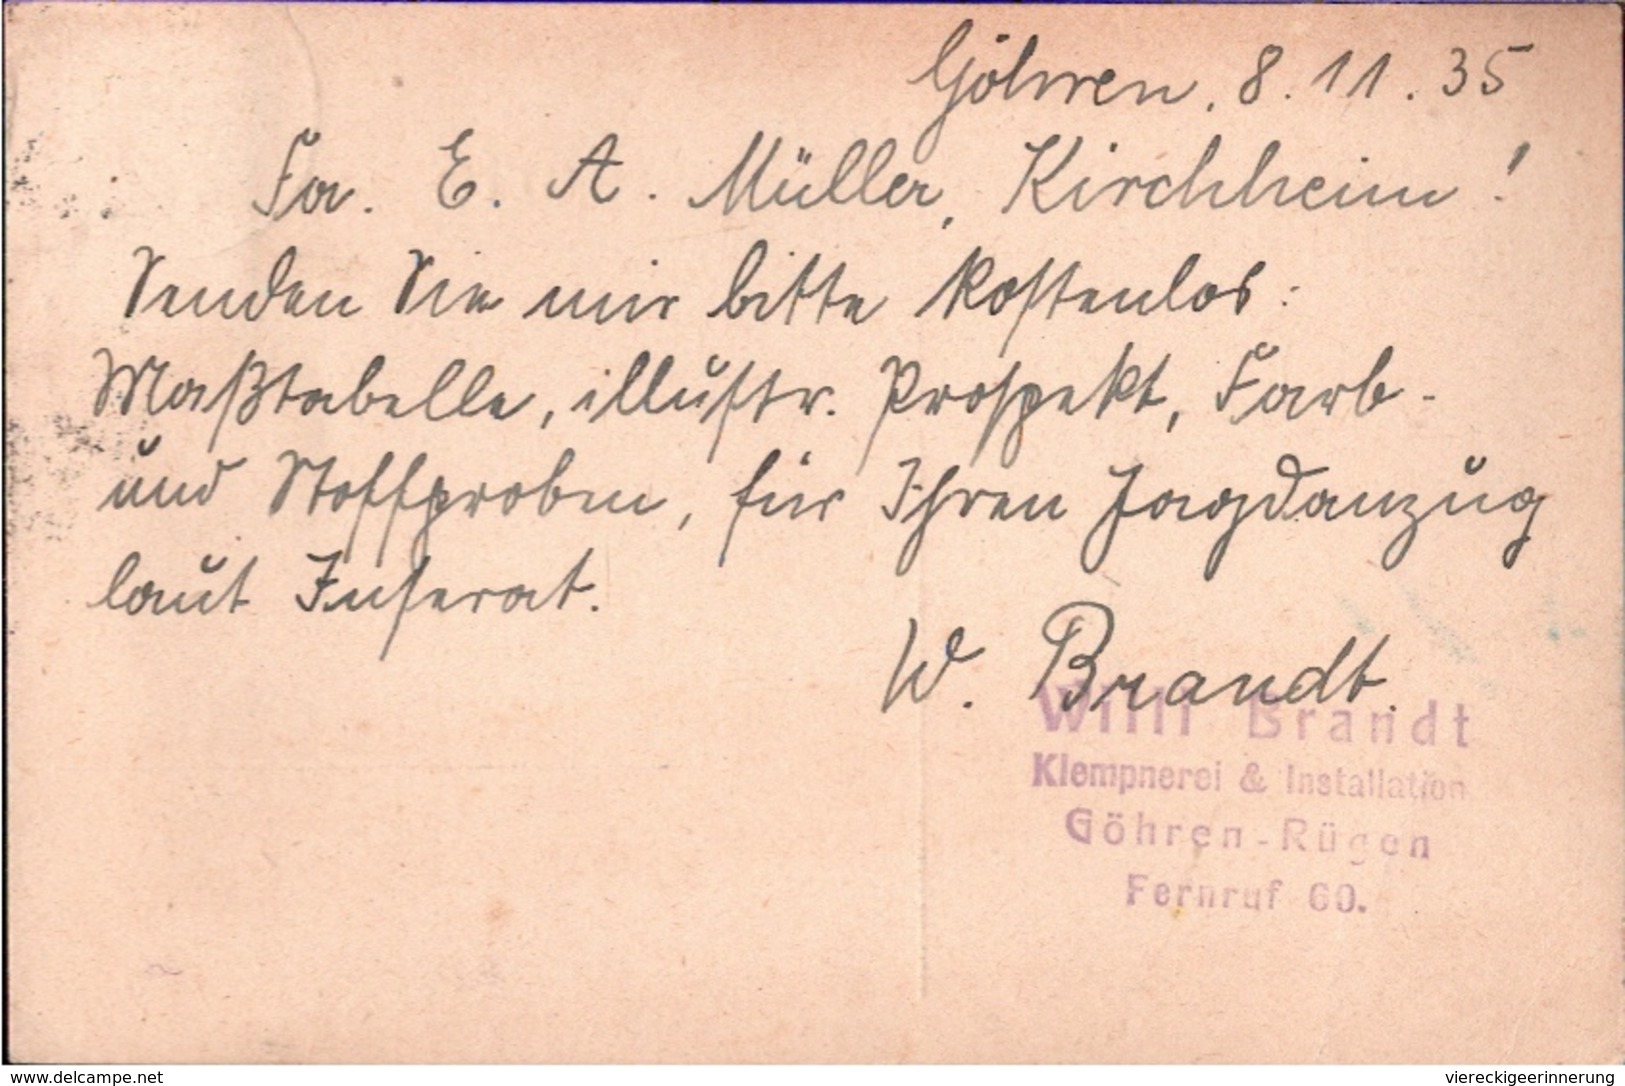 Göhren, 8.11.35
Fa. E. A. Müller, Kirchheim!
Senden Sie mir bitte kostenlos:
Maßtabelle, illustr. Prospekt, Farb-
und Stoffproben, für Ihren Jagdanzug
laut Inserat.
W. Brandt.
Willi Brandt
Klempnerei & Installation
Göhren-Rügen
Fernruf 60.
www.delcampe.net
viereckigeerinnerung